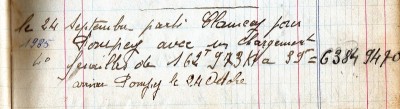 le 24 Septembre parti Blainville pour
1935 Pompey avec un chargement
4° feuilles de 162T 973K à 39F = 6384 94 70
arrivé Pompey le 24 Octobre